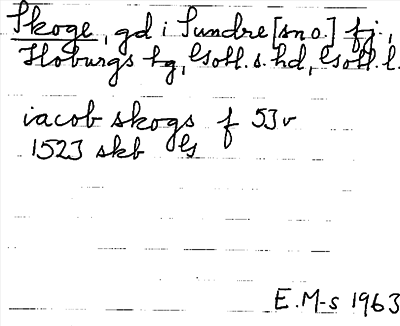 Skoge, gd i Sundre [sn o.] fj.,
Hoburgs tg, Gotl. s. hd, Gotl. l.
iacob skogs f 53v
1523 skb G
E. M-s 1963